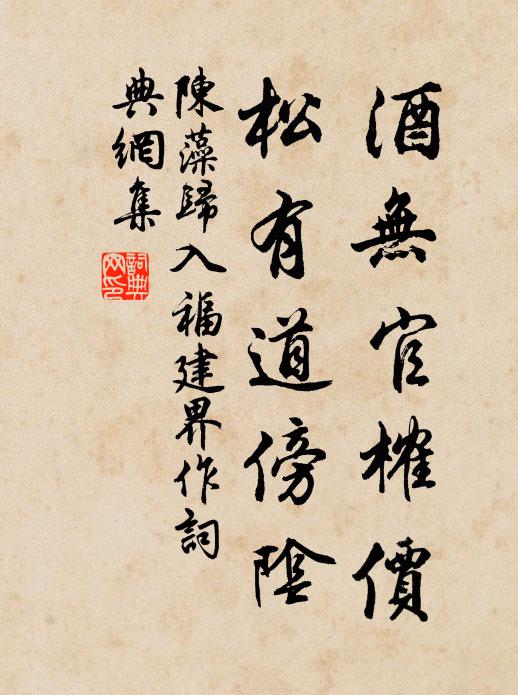 酒無官榷價
松有道傍陰
陳藻歸入福建界作詞
典網集
詞典網印